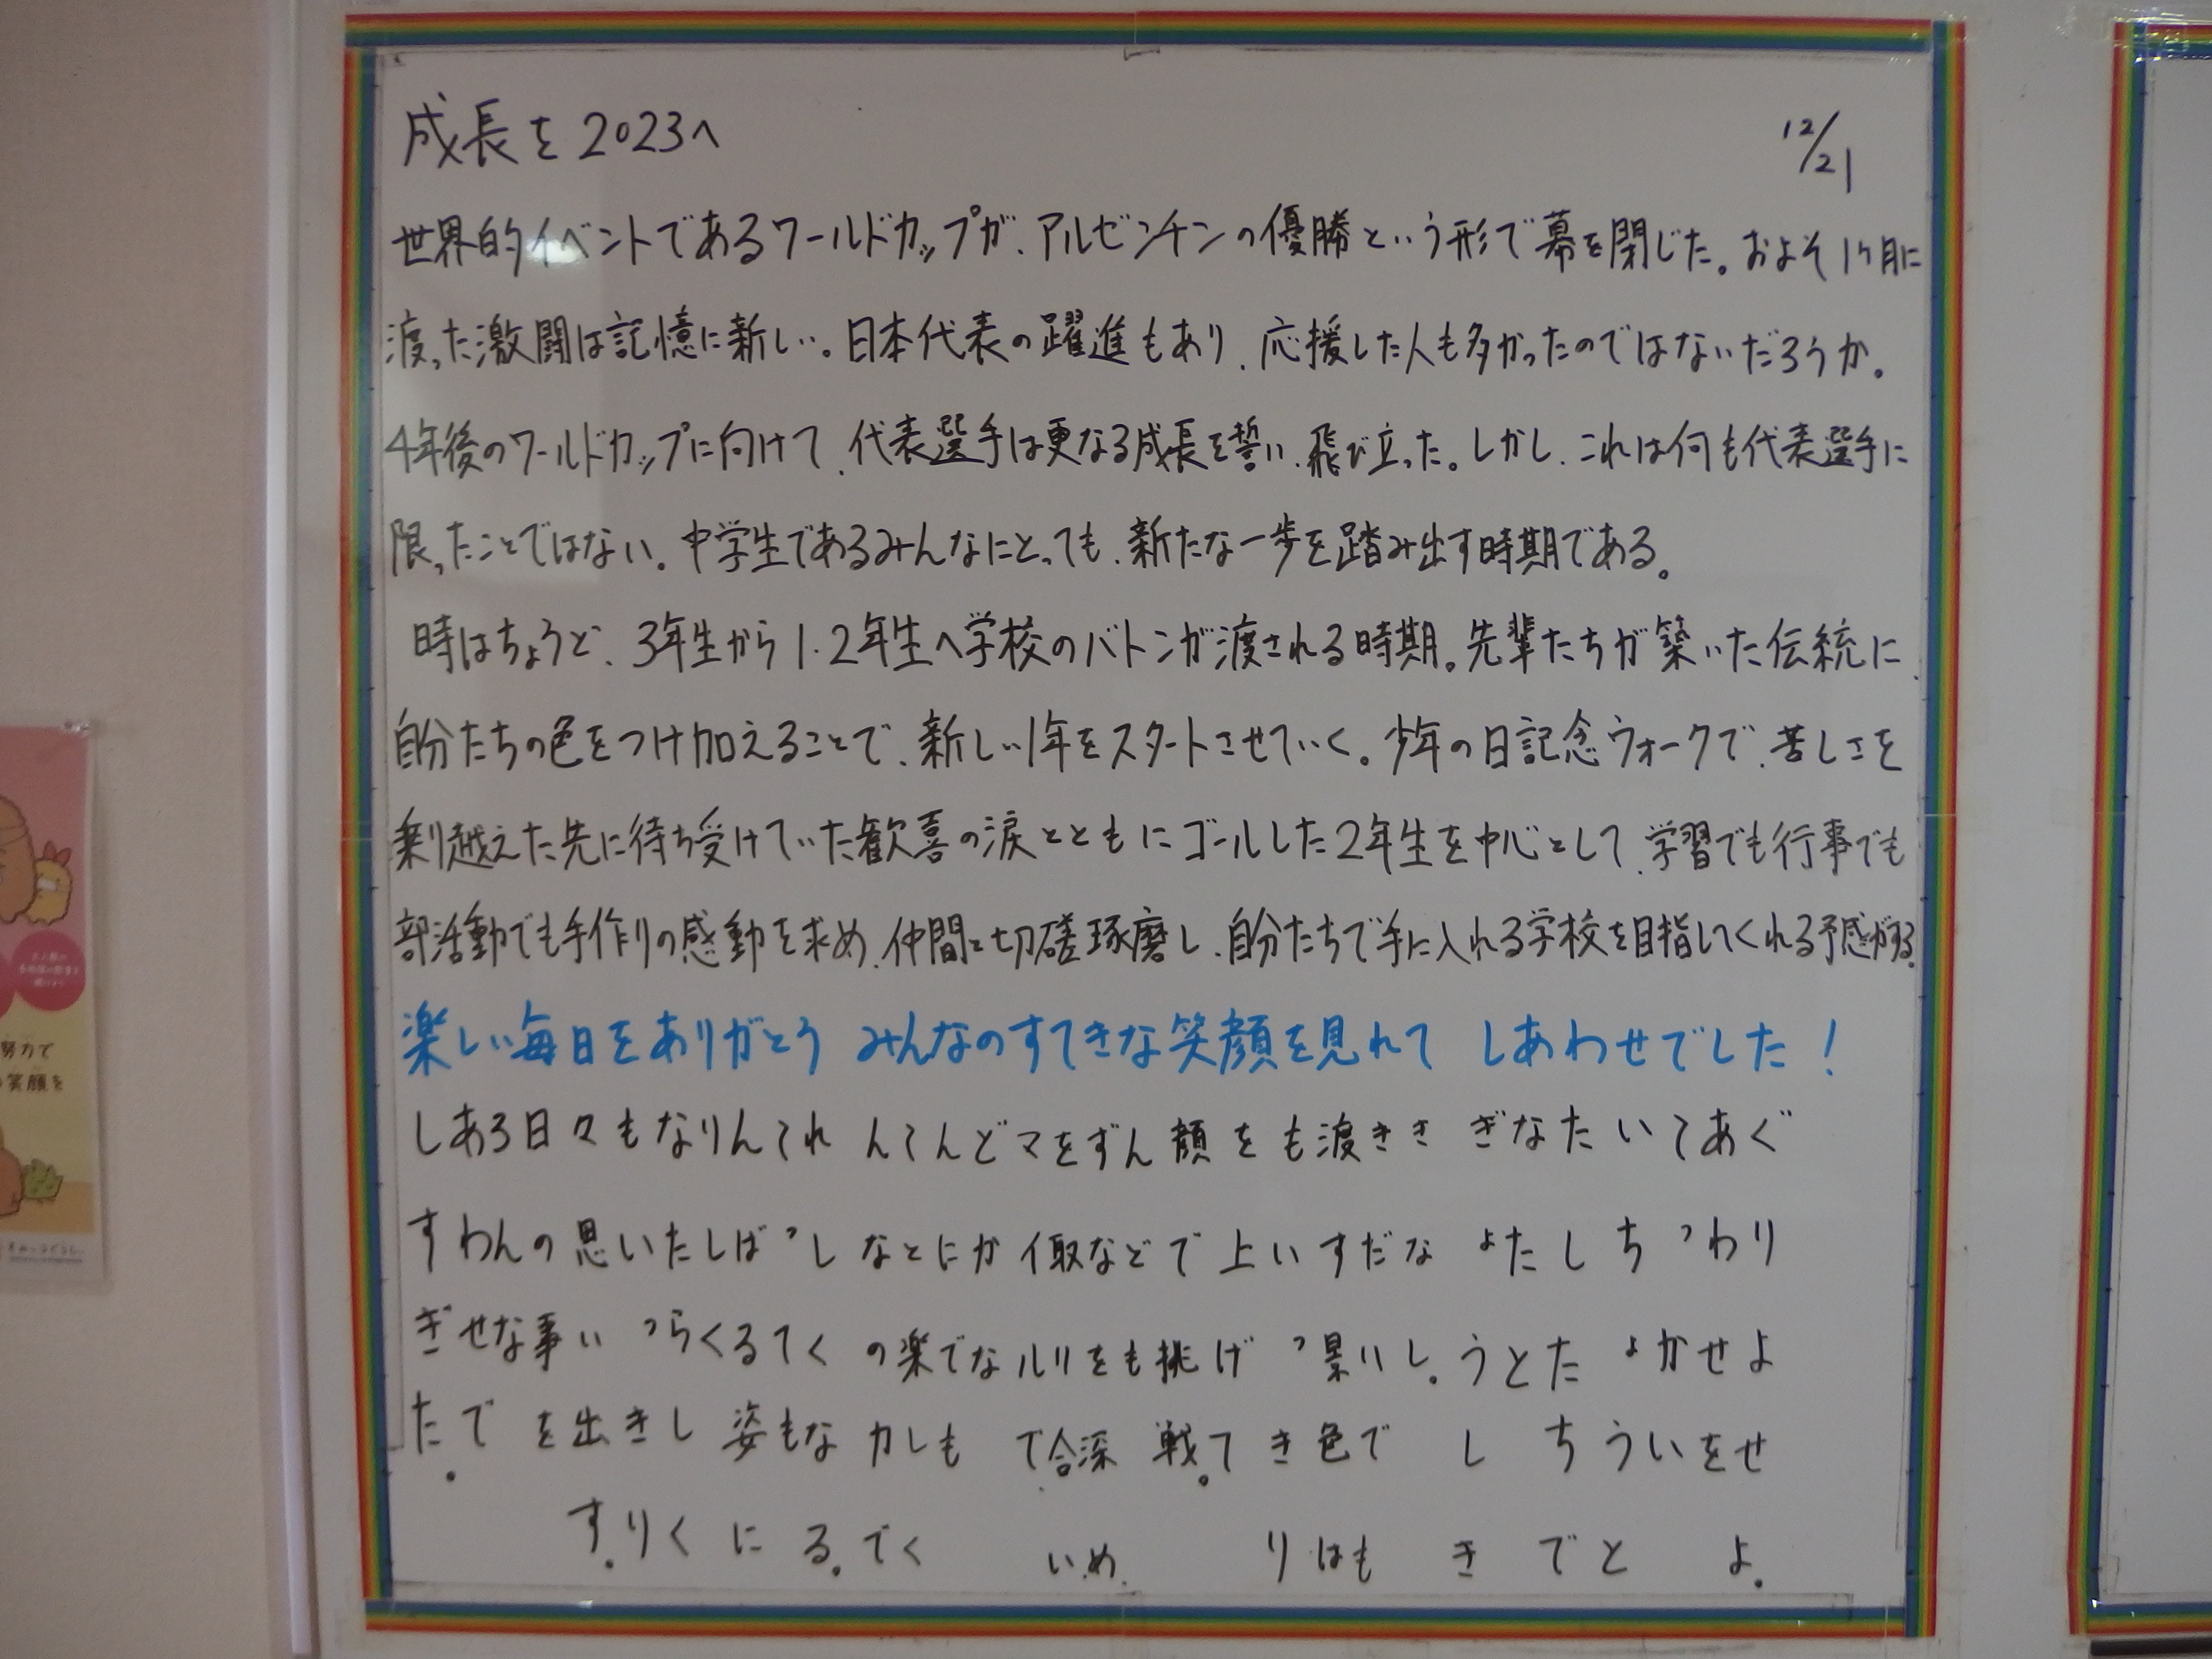 成長を2023へ
12/21
世界的イベントであるワールドカップが、アルゼンチンの優勝という形で幕を閉じた。およそ1ヶ月に
渡った激闘は記憶に新しい。日本代表の躍進もあり、応援した人も多かったのではないだろうか。
4年後のワールドカップに向けて、代表選手は更なる成長を誓い、飛び立った。しかし、これは何も代表選手に
限ったことではない。中学生であるみんなにとっても、新たな一歩を踏み出す時期である。
時はちょうど、3年生から1・2年生へ学校のバトンが渡される時期。先輩たちが築いた伝統に、
自分たちの色をつけ加えることで、新しい1年をスタートさせていく。少年の日記念ウォークで、苦しさを
乗り越えた先に待ち受けていた歓喜の涙とともにゴールした2年生を中心として、学習でも行事でも
部活動でも手作りの感動を求め、仲間と切磋琢磨し、自分たちで手に入れる学校を目指してくれる予感がする。
楽しい毎日をありがとう みんなのすてきな笑顔を見れて しあわせでした!
しあろ日々もなりんてれ んてんどマをずん顔をも渡きき ぎなたいてあぐ
すわんの思いたしばっし なとにかイ取などで上いすだな ょたしちっわり
ぎせな事い っらくるてく の楽でなルリをも挑げ っ景いし。うとた ょかせよ
た。で を出きし 姿もな カしも で合深 戦って き色で し ちういをせ
す。りく に る。でく い、め、 りはも き でと よ。